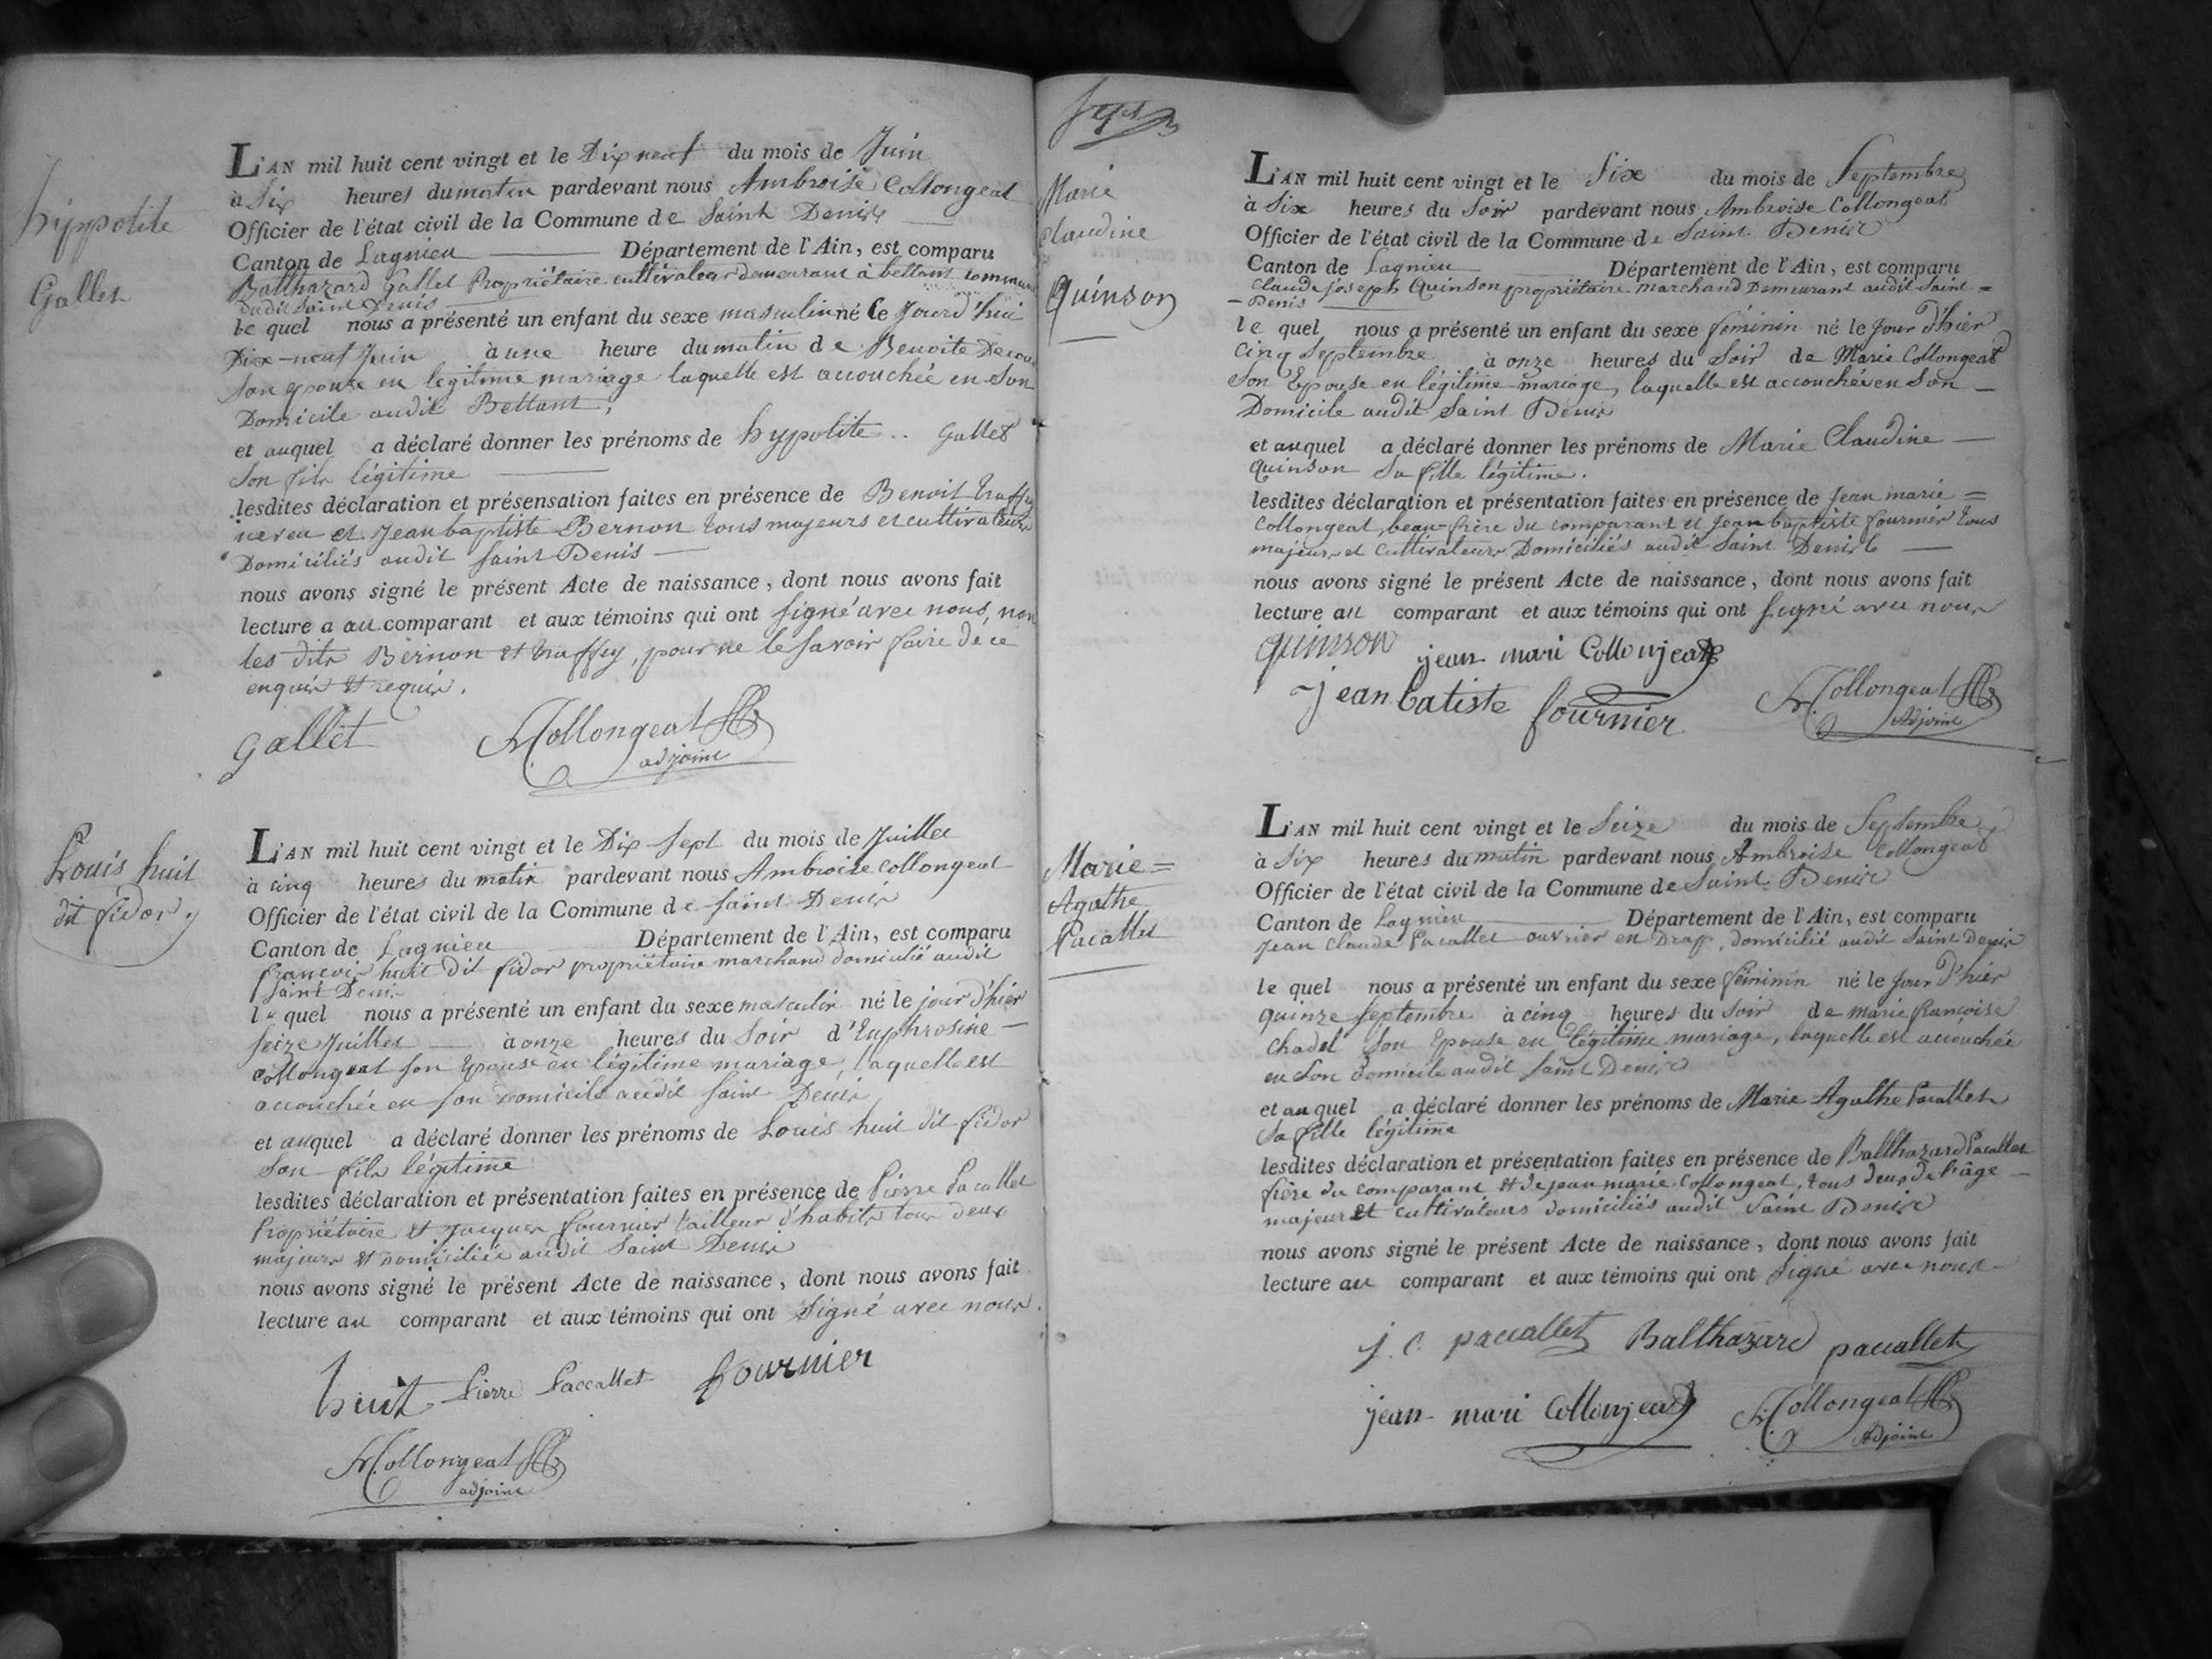 hyppolite
Gallet
L'AN mil huit cent vingt et le Dix neuf du mois de Juin
à Six heures du matin pardevant nous Ambroise Collongeat
Officier de l'état civil de la Commune de Saint Denis
Canton de Lagnieu Département de l'Ain, est comparu
Balthazard Gallet Propriétaire cultivateur demeurant à bettant commune
dudit Saint Denis
le quel nous a présenté un enfant du sexe masculin né le Jourd'hui
Dix-neuf Juin à une heure du matin de Benoite
Son epouse en légitime mariage laquelle est accouchée en Son
Domicile audit Bettant,
et auquel a déclaré donner les prénoms de hyppolite .. Gallet
Son fils légitime
lesdites déclaration et présensation faites en présence de Benoit truffy
neveu et Jean baptiste Bernon tous majeurs et cultivateurs
Domiciliés audit Saint Denis
nous avons signé le présent Acte de naissance, dont nous avons fait
lecture a au comparant et aux témoins qui ont Signé avec nous, non
les dits Bernon et truffy, pour ne le Savoir faire de ce
enquis et requis.
gallet
Collongeat
adjoint
Louis huit
dit fidor
L'AN mil huit cent vingt et le Dix Sept du mois de Juillet
à cinq heures du matin pardevant nous Ambroise Collongeat
Officier de l'état civil de la Commune de Saint Denis
Canton de Lagnieu Département de l'Ain, est comparu
françois huit dit fidor propriétaire marchand domicilié audit
Saint Denis
le quel nous a présenté un enfant du sexe masculin né le jour d'hier
Seize Juillet à onze heures du Soir d'Euphrosine
Collongeat Son Epouse en légitime mariage, laquelle est
accouchée en Son Domicile audit Saint Denis
et auquel a déclaré donner les prénoms de Louis huit dit fidor
Son fils légitime
lesdites déclaration et présentation faites en présence de Pierre Pacallet
Propriétaire et Jacques fournier tailleur d'habits tous deux
majeurs et Domiciliés audit Saint Denis
nous avons signé le présent Acte de naissance, dont nous avons fait
lecture au comparant et aux témoins qui ont Signé avec nous.
huit Pierre Paccallet fournier
Collongeat
adjoint
Marie
Claudine
Quinson
L'AN mil huit cent vingt et le Six du mois de Septembre
à Six heures du Soir pardevant nous Ambroise Collongeat
Officier de l'état civil de la Commune de Saint Denis
Canton de Lagnieu Département de l'Ain, est comparu
Claude Joseph Quinson propriétaire marchand Demeurant audit Saint =
- Denis
le quel nous a présenté un enfant du sexe féminin né le Jour d'hier
Cinq Septembre à onze heures du Soir de Marie Collongeat
Son Epouse en légitime mariage, laquelle est accouchée en Son
Domicile audit Saint Denis
et auquel a déclaré donner les prénoms de Marie Claudine
Quinson Sa fille légitime.
lesdites déclaration et présentation faites en présence de Jean marie =
Collongeat, beau=frère du comparant et Jean baptiste fournier tous
majeurs et Cultivateurs Domiciliés audit Saint Denis
nous avons signé le présent Acte de naissance, dont nous avons fait
lecture au comparant et aux témoins qui ont Signé avec nous
quinson jean mari Collonjeat
jean batiste fournier
Collongeat
Adjoint
Marie=
Agathe
Pacallet
L'AN mil huit cent vingt et le Seize du mois de Septembre
à Six heures du matin pardevant nous Ambroise Collongeat
Officier de l'état civil de la Commune de Saint Denis
Canton de Lagnieu Département de l'Ain, est comparu
Jean Claude Pacallet ouvrier en Drap, domicilié audit Saint Denis
le quel nous a présenté un enfant du sexe féminin né le Jour d'hier
quinze Septembre à cinq heures du Soir de marie françoise
Chadel Son Epouse en légitime mariage, laquelle est accouchée
en Son domicile audit Saint Denis
et auquel a déclaré donner les prénoms de Marie Agathe Pacallet
Sa fille légitime
lesdites déclaration et présentation faites en présence de Balthazard Pacallet
frère du comparant et de jean marie Collongeat, tous deux de l'âge
majeur et cultivateurs domiciliés audit Saint Denis
nous avons signé le présent Acte de naissance, dont nous avons fait
lecture au comparant et aux témoins qui ont Signé avec nous
j. C. paccallet Balthazard paccallet
jean mari Collonjeat
Collongeat
Adjoint